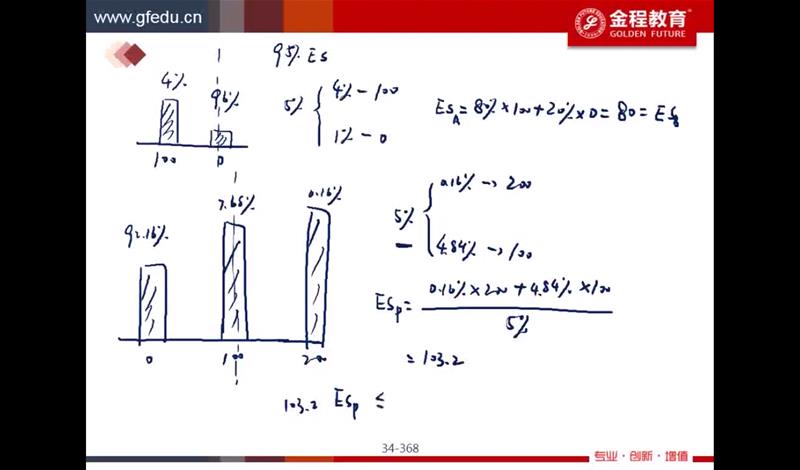 www.gfedu.cn
金程教育
GOLDEN FUTURE
95% ES
4%
96%
100
0
5% { 4% - 100
1% - 0
ES_A = 80% × 100 + 20% × 0 = 80 = ES_B
92.16%
7.68%
0.16%
0
100
200
5% { 0.16% → 200
4.84% → 100
ES_P = (0.16% × 200 + 4.84% × 100) / 5%
= 103.2
103.2 ES_P ≤
34-368
专业·创新·增值